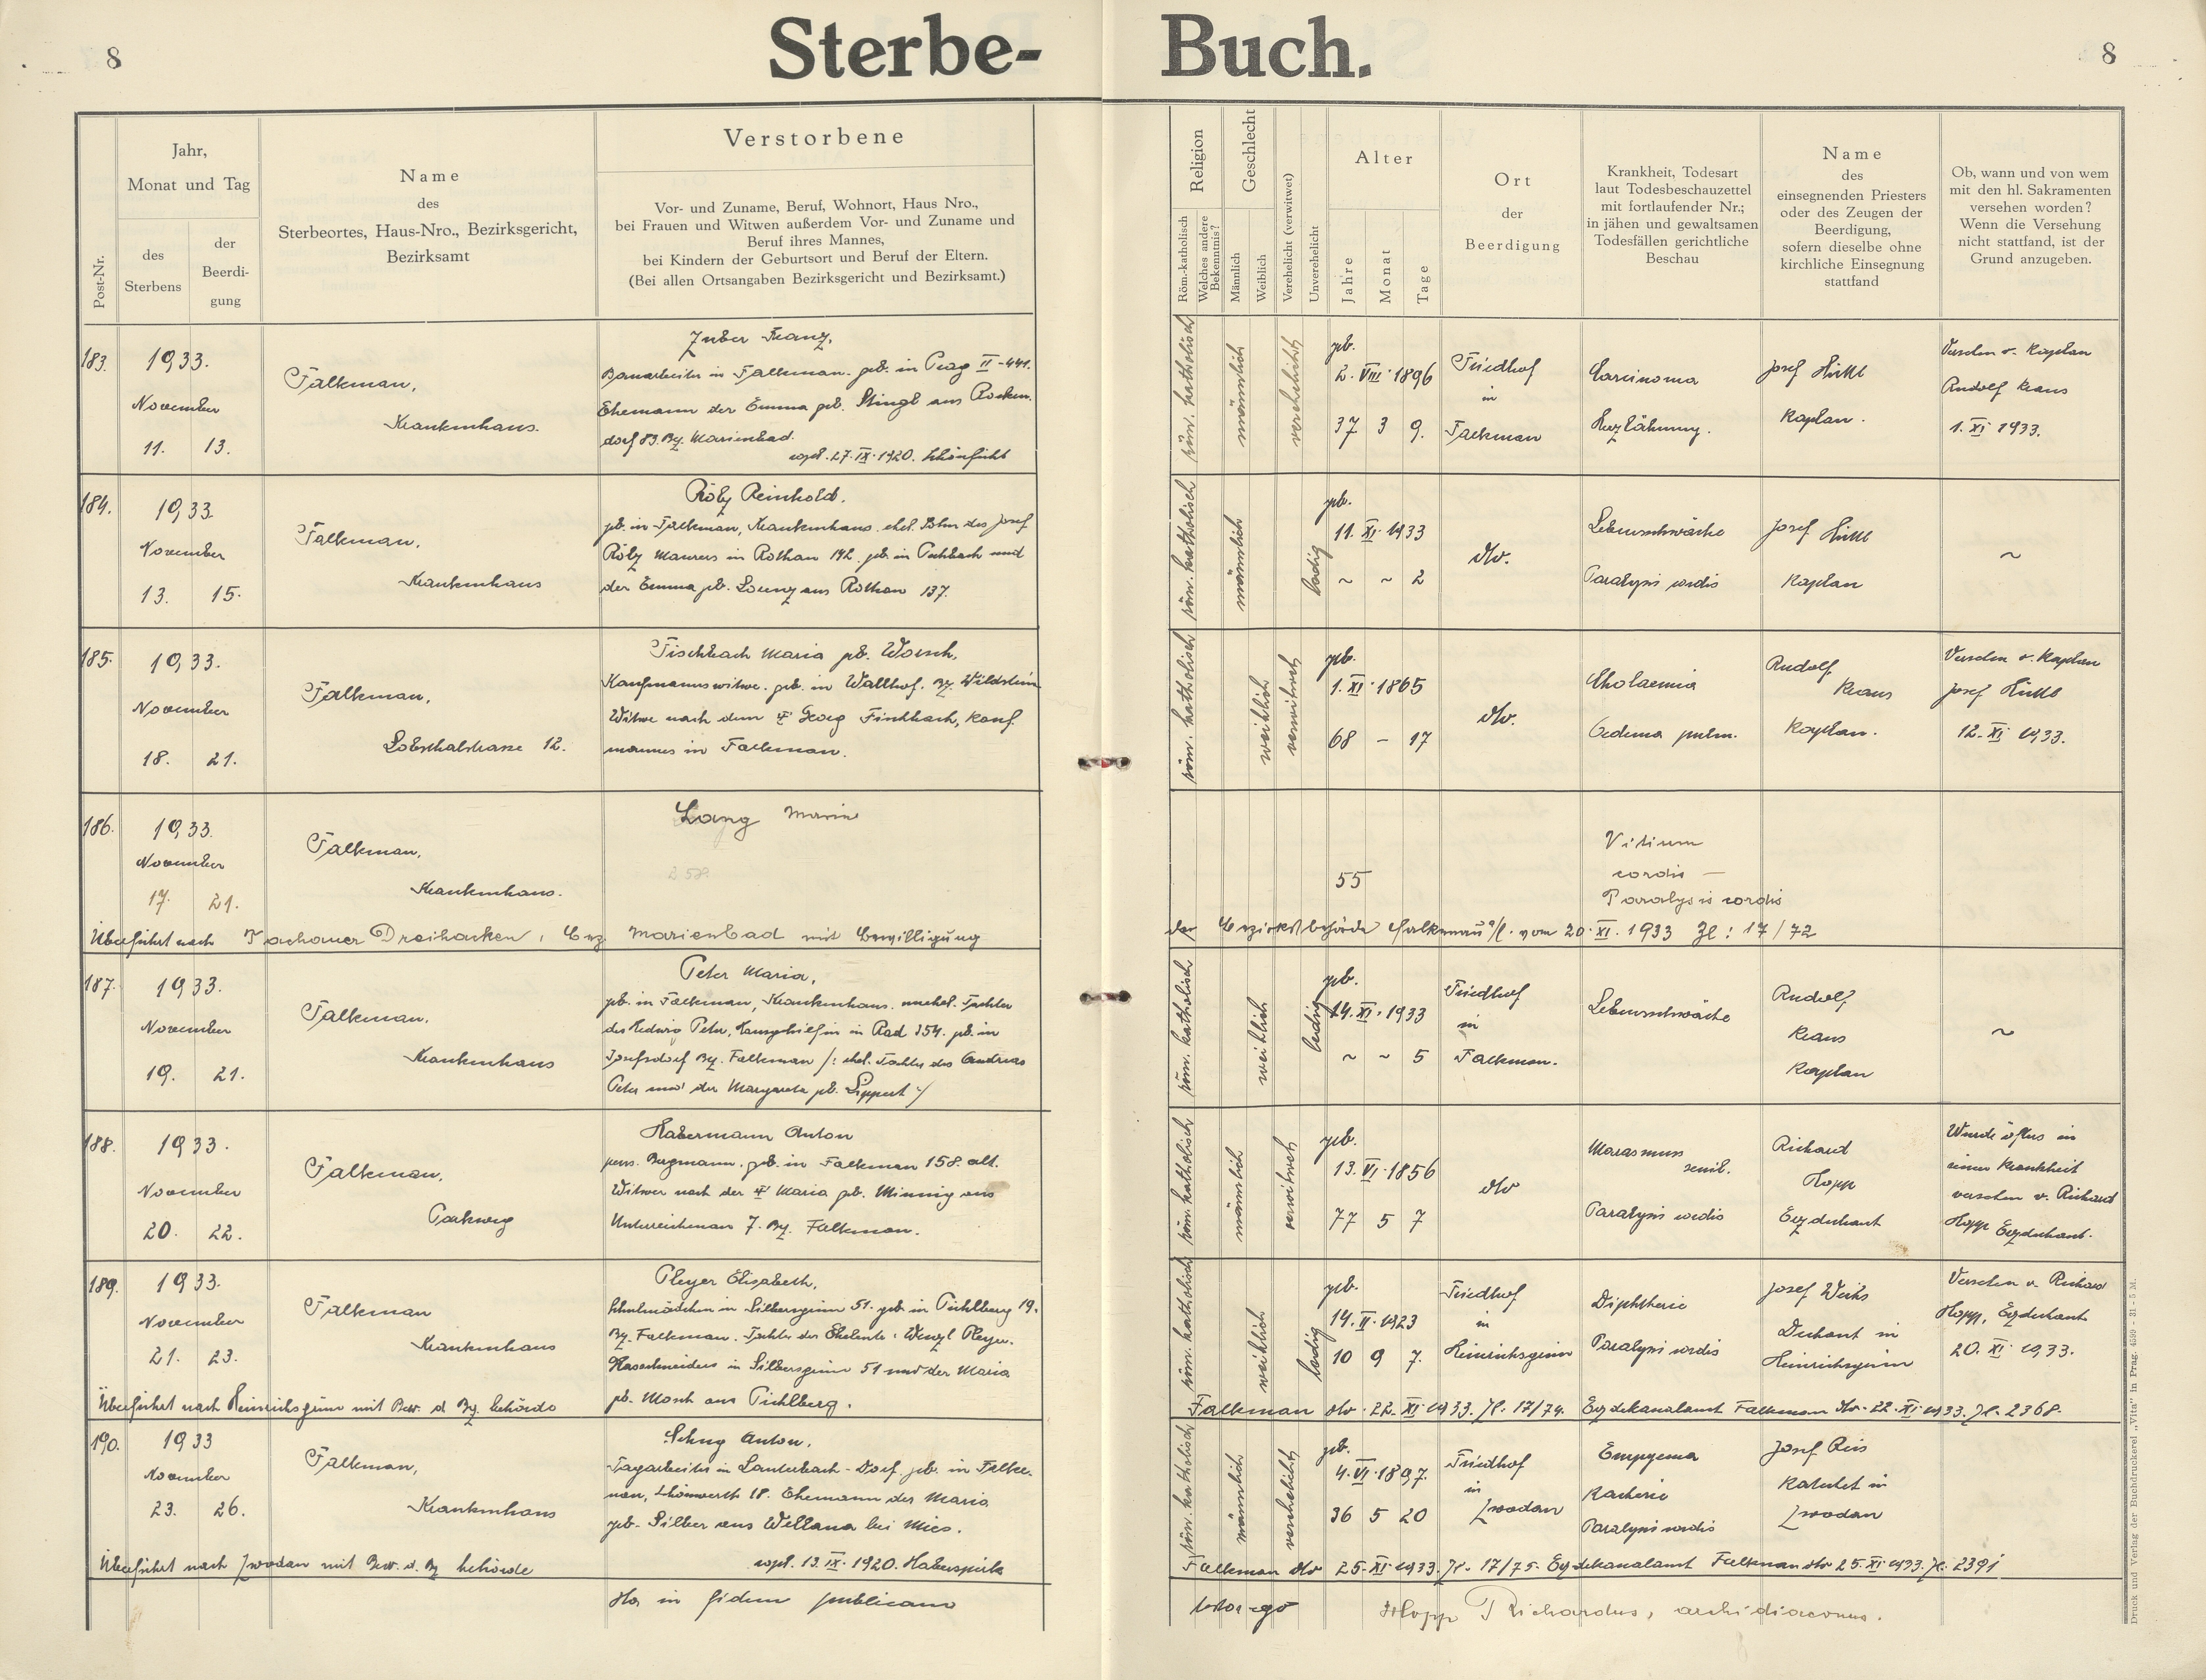 8
Sterbe-
Buch.
8
Post-Nr.
Jahr,
Monat und Tag
des
Sterbens
der
Beerdi-
gung
Name
des
Sterbeortes, Haus-Nro., Bezirksgericht,
Bezirksamt
Verstorbene
Vor- und Zuname, Beruf, Wohnort, Haus Nro.,
bei Frauen und Witwen außerdem Vor- und Zuname und
Beruf ihres Mannes,
bei Kindern der Geburtsort und Beruf der Eltern.
(Bei allen Ortsangaben Bezirksgericht und Bezirksamt.)
Religion
Röm.-katholisch
Welches andere
Bekenntnis?
Geschlecht
Männlich
Weiblich
Verehelicht (verwitwet)
Unverehelicht
Alter
Jahre
Monat
Tage
Ort
der
Beerdigung
Krankheit, Todesart
laut Todesbeschauzettel
mit fortlaufender Nr.;
in jähen und gewaltsamen
Todesfällen gerichtliche
Beschau
Name
des
einsegnenden Priesters
oder des Zeugen der
Beerdigung,
sofern dieselbe ohne
kirchliche Einsegnung
stattfand
Ob, wann und von wem
mit den hl. Sakramenten
versehen worden?
Wenn die Versehung
nicht stattfand, ist der
Grund anzugeben.
183.
1933.
November
11. 13.
Falkenau,
Krankenhaus.
Zuber Franz,
Bauarbeiter in Falkenau. geb. in Prag II-441.
Ehemann der Emma geb. Stingl aus Rocken-
dorf 83. Bz. Marienbad.
copul. 27. IX. 1920. Schönficht
röm. katholisch
männlich
verehelicht
geb.
2. VIII. 1896
37 3 9.
Friedhof
in
Falkenau
Carcinoma
Herzlähmung.
Josef Hüttl
Kaplan.
Versehen v. Kaplan
Rudolf Kraus
1. XI. 1933.
184.
1933
November
13. 15.
Falkenau,
Krankenhaus
Rölz Reinhold.
geb. in Falkenau, Krankenhaus. ehel. Sohn des Josef
Rölz Maurers in Rothau 142. geb. in Pichbach und
der Emma geb. Lorenz aus Rothau 137.
röm. katholisch
männlich
ledig
geb.
11. XI. 1933
~ ~ 2
dto.
Lebensschwäche
Paralysis cordis
Josef Hüttl
Kaplan
~
185.
1933.
November
18. 21.
Falkenau,
Lobsthalstrasse 12.
Fischbach Maria geb. Worsch,
Kaufmannswitwe. geb. in Wallhof. Bz. Wildstein
Witwe nach dem † Georg Fischbach, Kauf-
mannes in Falkenau.
röm. katholisch
weiblich
verwitwet
geb.
1. XI. 1865
68 – 17
dto.
Cholaemia
Oedema pulm.
Rudolf
Kraus
Kaplan.
Versehen v. Kaplan
Josef Hüttl
12. XI 1933.
186.
1933.
November
17. 21.
Falkenau,
Krankenhaus.
Lang Marie
258.
55
Vitium
cordis –
Paralysis cordis
Überführt nach Tachauer Dreihacken, Bez. Marienbad mit Bewilligung
der Bezirksbehörde Falkenau a/E. vom 20. XI. 1933 Zl: 17/72
187.
1933.
November
19. 21.
Falkenau,
Krankenhaus
Peter Maria,
geb. in Falkenau, Krankenhaus. unehel. Tochter
der Hedwig Peter, Hausgehilfin in Rad 354. geb. in
Josefsdorf Bz. Falkenau /: ehel. Tochter des Andreas
Peter und der Margareta geb. Lippert :/
röm. katholisch
weiblich
ledig
geb.
14. XI. 1933
~ ~ 5
Friedhof
in
Falkenau.
Lebensschwäche
Rudolf
Kraus
Kaplan
~
188.
1933.
November
20. 22.
Falkenau,
Parkweg
Habermann Anton
pens. Bergmann. geb. in Falkenau 158. alt.
Witwer nach der † Maria geb. Minnig aus
Unterreichenau 7. Bz. Falkenau.
röm. katholisch
männlich
verwitwet
geb.
13. VI. 1856
77 5 7
dto
Marasmus
senil.
Paralysis cordis
Richard
Hopp
Erzdechant
Wurde öfters in
seiner Krankheit
versehen v. Richard
Hopp Erzdechant.
189.
1933.
November
21. 23.
Falkenau
Krankenhaus
Pleyer Elisabeth,
Schulmädchen in Silbersgrün 51. geb. in Pichlberg 19.
Bz. Falkenau. Tochter der Eheleute: Wenzl Pleyer.
in Silbersgrün 51 und der Maria
geb. Mosch aus Pichlberg.
röm. katholisch
weiblich
ledig
geb.
14. II. 1923
10 9 7.
Friedhof
in
Heinrichsgrün
Diphtherie
Paralysis cordis
Josef Weihs
Dechant in
Heinrichsgrün
Versehen v. Richard
Hopp, Erzdechant
20. XI 1933.
Überführt nach Heinrichsgrün mit Bew. d Bz. behörde
Falkenau dto. 22. XI 1933. Zl. 17/74. Erzdekanalamt Falkenau dto. 22. XI. 1933. Zl. 2368.
190.
1933
November
23. 26.
Falkenau,
Krankenhaus
Schug Anton.
Tagarbeiter in Lauterbach-Dorf geb. in Falke-
nau, Schönwerth 18. Ehemann der Maria
geb. Silber aus Wellana bei Mies.
copul. 13. IX. 1920. Haberspirk
röm. katholisch
männlich
verehelicht
geb.
4. VI. 1897.
36 5 20
Friedhof
in
Zwodau
Empyema
Kacherie
Paralysis cordis
Josef Reis
Katechet in
Zwodau
Überführt nach Zwodau mit Bew. d. Bz behörde
Falkenau dto 25. XI 1933. Zl. 17/75. Erzdekanalamt Falkenau dto 25. XI. 1933. Zl. 2391
Hos in fidem publicam
testor ego Hopp Richardus, archidiaconus.
Druck und Verlag der Buchdruckerei „Vita“ in Prag. 4599 - 31 - 5 M.